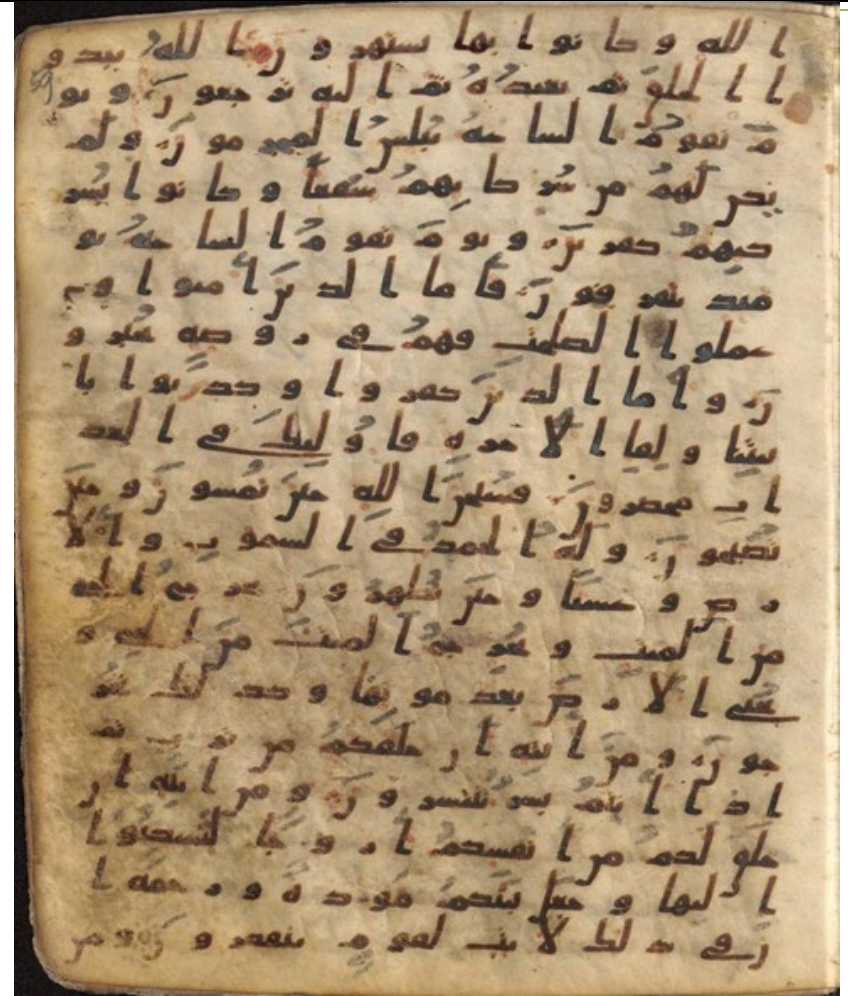 ا لله و كا نو ا بها يستهزو ن ا لله يبدو
ا ا لخلق ثم يعيده ثم ا ليه تر جعو ن و يو
م تقو م ا لسا عة يبلس ا لمجر مو ن و لم
يكن لهم من شر كا يهم شفعا و كا نو ا بشر
كيهم كفر ين و يو م تقو م ا لسا عة يو
ميذ يتفر قو ن فا ما ا لذ ين ا منو ا و
عملو ا ا لصلحت فهم في ر و ضة يحبر و
ن و ا ما ا لذ ين كفر و ا و كذ بو ا با
يتنا و لقا ا لا خر ة فا و ليك في ا لعذ
ا ب محضر و ن فسبحن ا لله حين تمسو ن و حين
تصبحو ن و له ا لحمد في ا لسمو ت و ا لا
ر ض و عشيا و حين تظهر و ن يخر ج ا لحي
من ا لميت و يخر ج ا لميت من ا لحي و
يحي ا لا ر ض بعد مو تها و كذ لك تخر
جو ن و من ا يته ا ن خلقكم من تر ا ب ثم
ا ذ ا ا نتم بشر تنتشر و ن و من ا يته ا ن
خلق لكم من ا نفسكم ا ز و جا لتسكنو ا
ا ليها و جعل بينكم مو د ة و ر حمة ا
ن في ذ لك لا يت لقو م يتفكر و ن و من